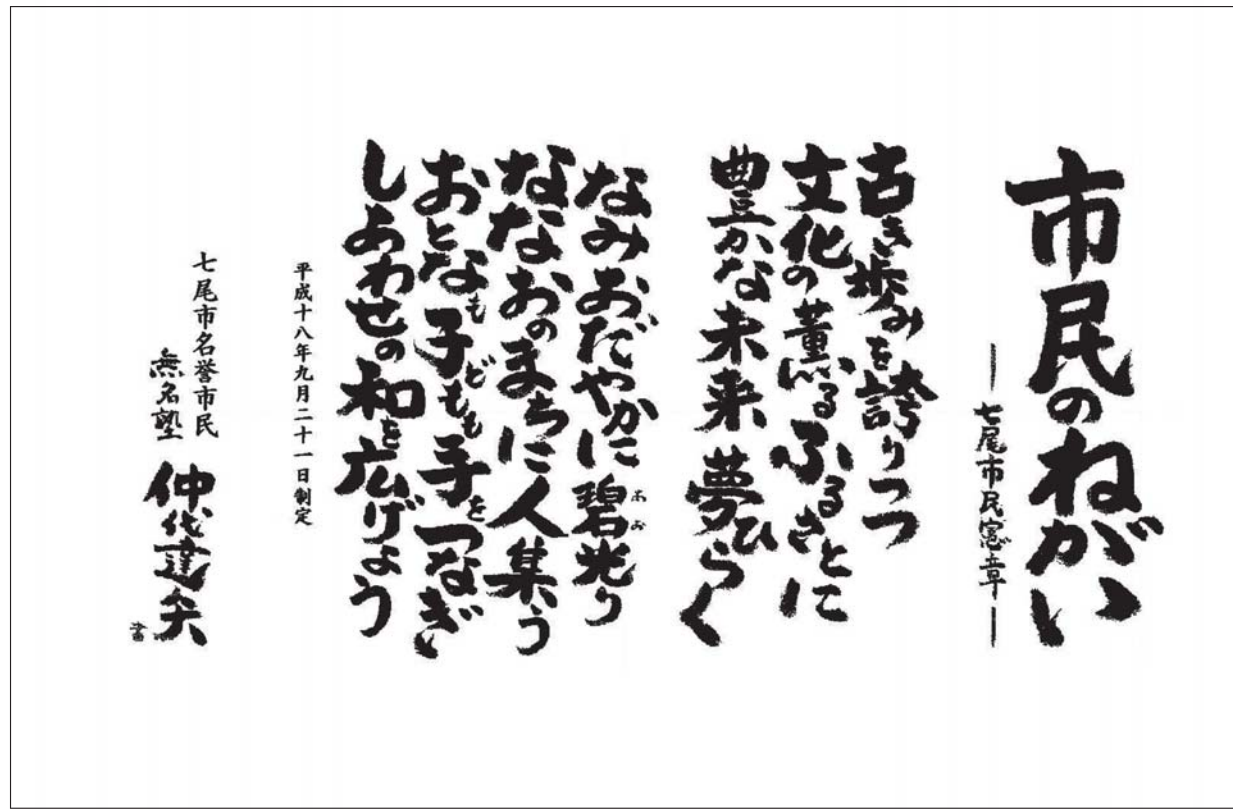 市民のねがい
―七尾市民憲章―
古き歩みを誇りつつ
文化の薫るふるさとに
豊かな未来夢ひらく
なみおだやかに碧光り
あお
ななおのまちに人集う
おとなも子どもも手をつなぎ
しあわせの和を広げよう
平成十八年九月二十一日制定
七尾市名誉市民
無名塾 仲代達矢
書